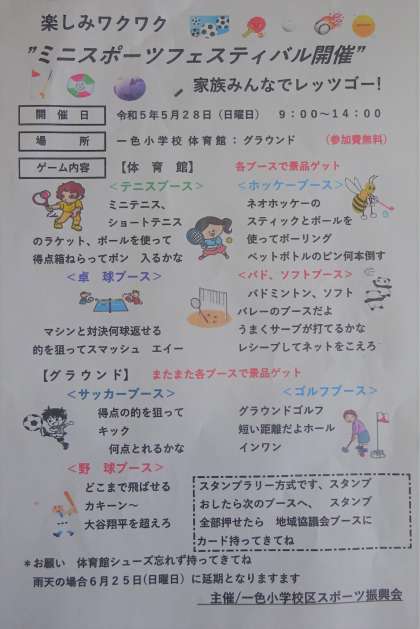 楽しみワクワク
”ミニスポーツフェスティバル開催”
家族みんなでレッツゴー!
開 催 日 令和5年5月28日(日曜日) 9:00～14:00
場 所 一色小学校 体育館:グラウンド (参加費無料)
ゲーム内容 【体 育 館】 各ブースで景品ゲット
<テニスブース>
ミニテニス、
ショートテニス
のラケット、ボールを使って
得点箱ねらってポン 入るかな
<ホッケーブース>
ネオホッケーの
スティックとボールを
使ってボーリング
ペットボトルのピン何本倒す
<卓 球ブース>
マシンと対決何球返せる
的を狙ってスマッシュ エイー
<バド、ソフトブース>
バドミントン、ソフト
バレーのブースだよ
うまくサーブが打てるかな
レシーブしてネットをこえろ
【グラウンド】 またまた各ブースで景品ゲット
<サッカーブース>
得点の的を狙って
キック
何点とれるかな
<ゴルフブース>
グラウンドゴルフ
短い距離だよホール
インワン
<野 球ブース>
どこまで飛ばせる
カキーン～
大谷翔平を超えろ
スタンプラリー方式です、スタンプ
おしたら次のブースへ、 スタンプ
全部押せたら 地域協議会ブースに
カード持ってきてね
*お願い 体育館シューズ忘れず持ってきてね
雨天の場合6月25日(日曜日)に延期となりますます
主催/一色小学校区スポーツ振興会